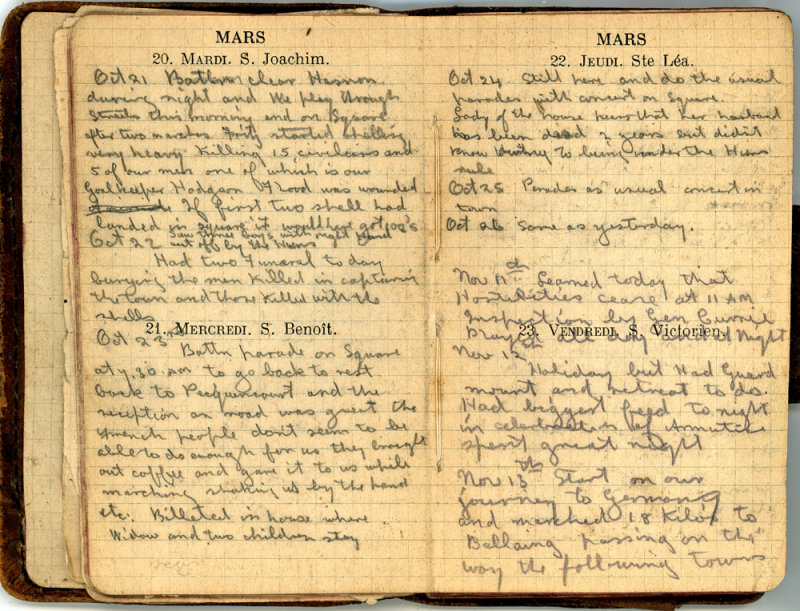 MARS
20. MARDI. S. Joachim.
Oct 21 Battn clear Hasnon
during night and We play through
Streets this morning and on Square
after two marches. Fritz started shelling
very heavy killing 15 civilians and
5 of our men one of which is our
Goalkeeper Hodgson Flood was wounded
If first two shell had
landed in square it would have got 100's
Saw three boys with right hand
cut off by the Huns
Oct 22
Had two Funeral to day
burying the men killed in capturing
the town and those killed with the
shells
21. MERCREDI. S. Benoît.
Oct 23rd
Battn parade on Square
at 7.30 AM to go back to rest
back to Pecquincourt and the
reception on road was great the
French people don't seem to be
able to do enough for us they brought
out coffee and gave it to us while
marching shaking us by the hand
etc. Billeted in house where
Widow and two children stay
MARS
22. JEUDI. Ste Léa.
Oct 24 Still here and do the usual
parades with concert on Square.
Lady of the house hears that her husband
has been dead 2 years but didn't
know owing to being under the Huns
rule
Oct 25 Parades as usual concert in
town
Oct 26 Same as yesterday.
Nov 11th Learned today that
Hostilities cease at 11 AM
Inspection by Gen Currie
Played all day and at Night
23. VENDREDI. S. Victorien.
Nov 12th
Holiday but Had Guard
mount and retreat to do.
Had biggest feed to night
in celebration of Armistice
spent great night
Nov 13th Start on our
journey to Germany
and marched 18 Kilos to
Bellaing passing on the
way the following towns